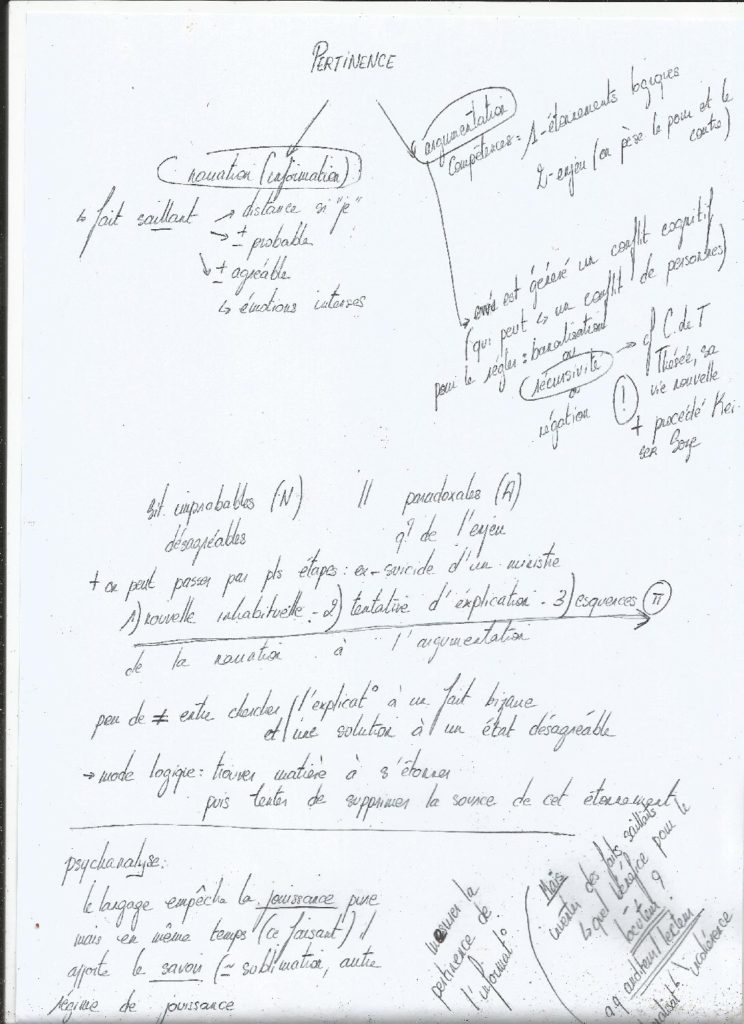 PERTINENCE
narration (information)
↳ fait saillant → distance si "je"
→ ± probable
↘ ± agréable
↳ émotions intenses
argumentation
Compétences = 1- étonnements logiques
2- enjeu (on pèse le pour et le
contre)
→ est généré un conflit cognitif
(qui peut ↳ un conflit de personnes)
pour le régler : banalisation
ou
récursivité → cf C. de T
ou
négation
Thérèse, sa
vie nouvelle
!
+ procédé Kei-
ser Soze
sit. improbables (N) // paradoxales (A)
désagréables q? de l'enjeu
+ on peut passer par pls étapes : ex - suicide d'un ministre
1) nouvelle inhabituelle - 2) tentative d'explication - 3) esquences π
de la narration à l'argumentation
peu de ≠ entre chercher l'explicat° à un fait bizarre
et une solution à un état désagréable
→ mode logique : trouver matière à s'étonner
puis tenter de supprimer la source de cet étonnement
psychanalyse :
le langage empêche la jouissance pure
mais en même temps (ce faisant) il
apporte le savoir (≃ sublimation, autre
régime de jouissance
mesurer la
pertinence de
l'informat°
Mais
inventer des faits saillants
↳ quel bénéfice pour le
locuteur ?
incohérence